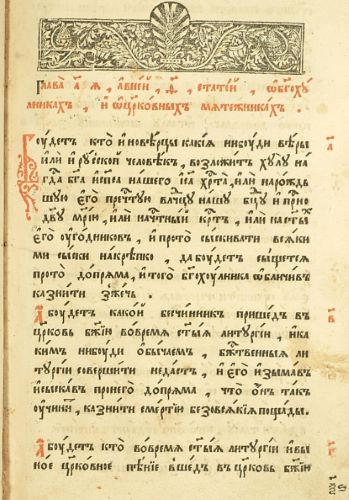 Глава҃ а҃ я , авней , д҃ , статей , ѡбгохꙋ
лникахъ , и ѡцрковныхъ мятежникахъ .
Боудетъ кто иновѣрцы какїя нибоуди вѣры
или и рꙋской человѣкъ , возложитъ хꙋлꙋ на
гда бга и спса нашего іса хрта , или нарождь
шꙋю его пречтꙋю влчцꙋ нашꙋ бцꙋ и прно
двꙋ мрїю , или начтный крть , или настых
его оугодниковъ , и прото сыскивати всяки
ми сыски накрѣпко , да боудетъ сыщется
прото допряма , и того бгохꙋлника ѡбличивъ
казнити зжечь .
Абоудетъ какой безчинникъ пришедъ въ
црковь бжїю вовремя стыя литꙋргїи , ика
кимъ нибоуди обычаемъ , бжтвенныя ли
тꙋргїи совершити недастъ , и его изымавъ
исыскавъ пронего допряма , что онъ такъ
оучинитъ , казнити смертїю безовсякїя пощады .
Абоудетъ кто вовремя стыя литꙋргїи ивы
ное црковное пѣнїе вшедъ въ црковь бжїю
а
в
г